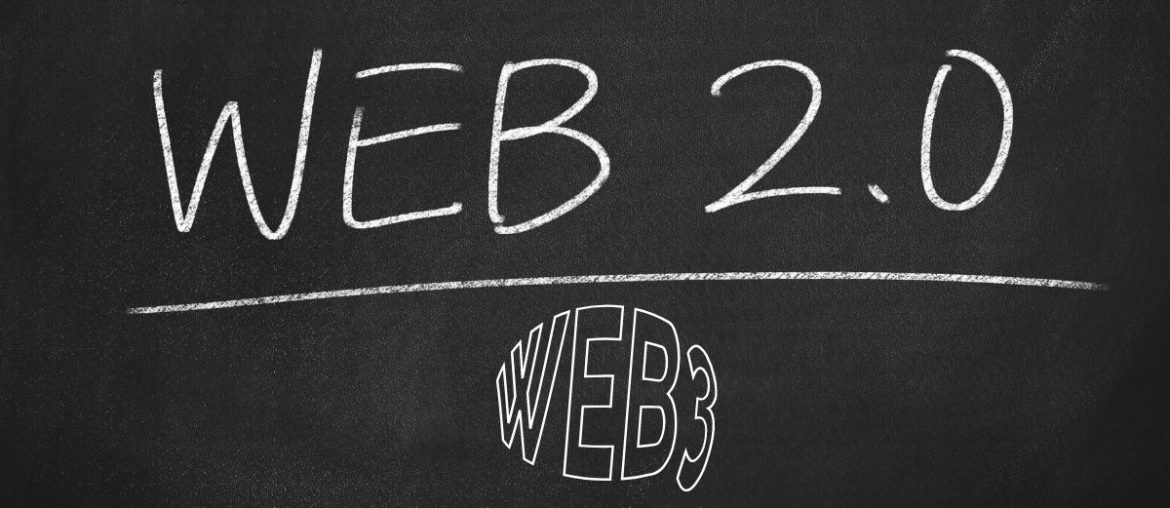 WEB 2.0
WEB3